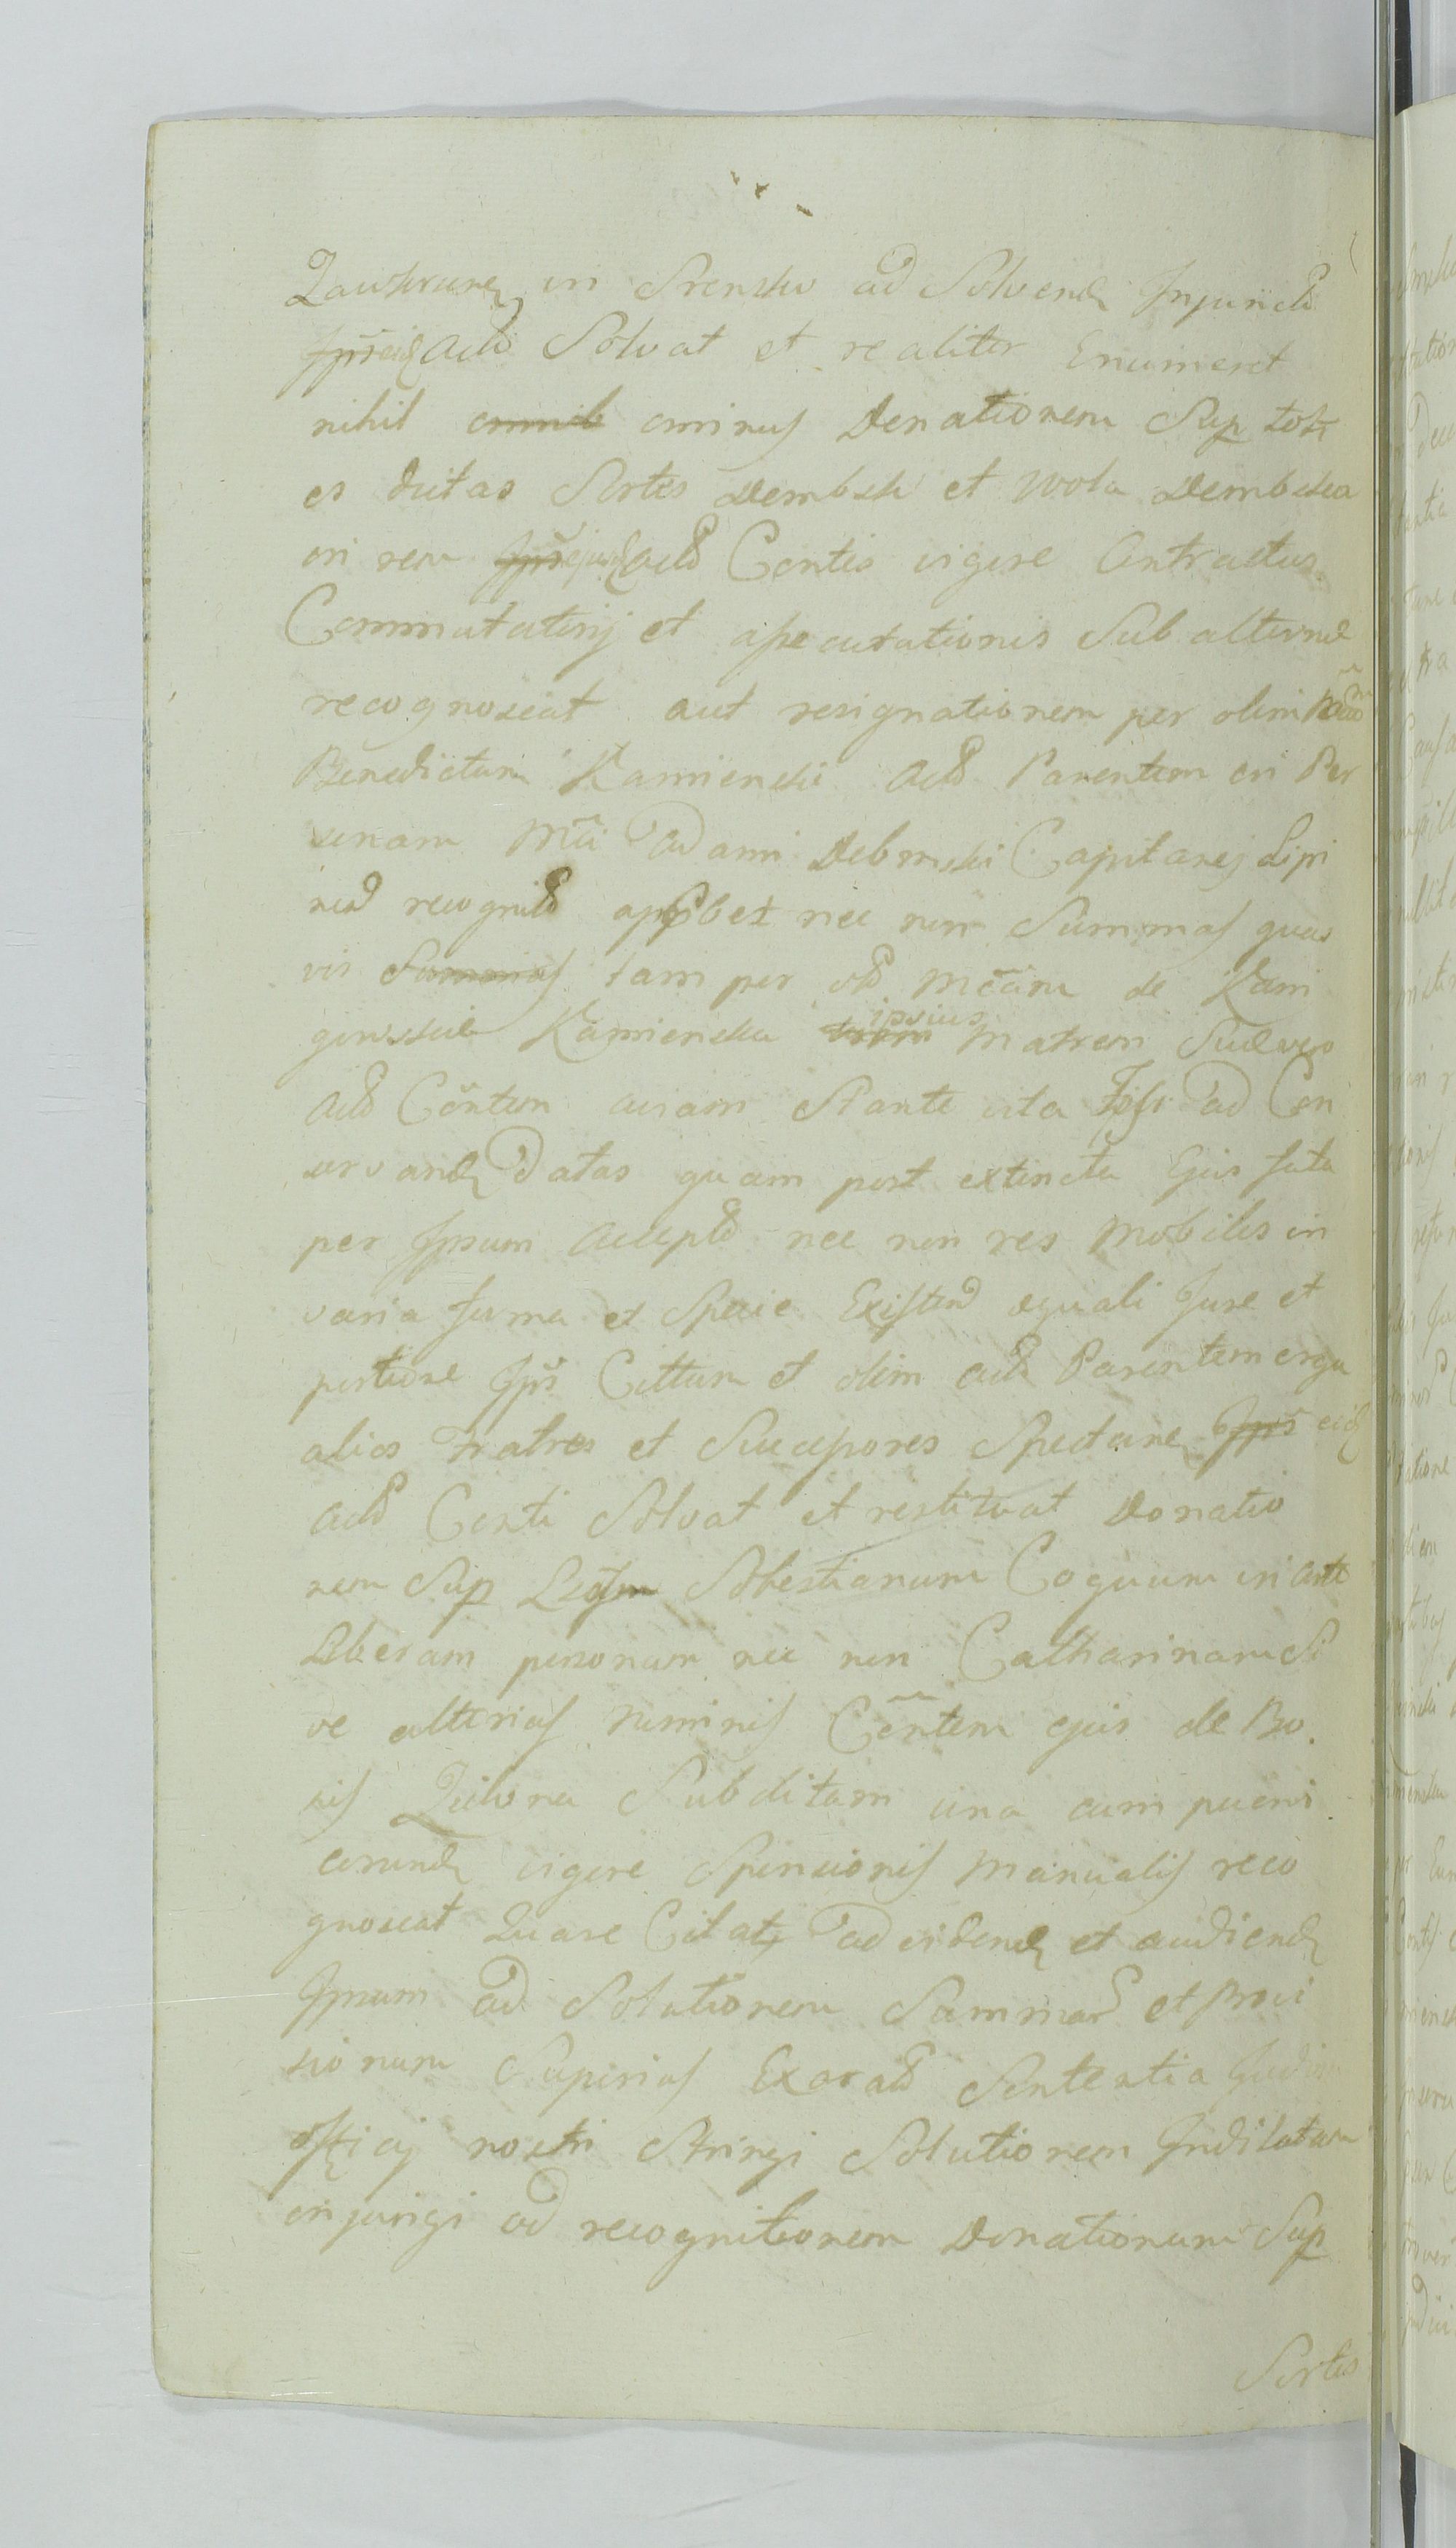 in Srensko ad Solvend Injunctã
Actõ Solvat et realiter Enumeret
nihil ominus Donationem Sup
es dictas Sortes Dembsk et Wola Dembska
in rem Actõ Contis vigore Contractus
Commutatorij et Sub alternã
recognoscat aut resignationem per olim
Benedictum Kamienski Actõ Parentem in Per
sonam Mci Adami Debinski Capitanej Lipi
recognitõ apprõbet nec non Summas quas
vis tam per Mcam de Kam
Kamienska ipsius Matrem
Actõ Contem Stante vita Ipsi ad Con
servand Datas quam post extincta Ejus fata
per Ipsum Acceptõ nec non res mobiles in
varia forma et Specie Existend æquali Jure et
portione Ips Cittum et olim Actõ Parentem ergu
alios Fratres et Successores Spectane eid
Actõ Conti Solvat et restituat Donatio
nem Sup Sebestianum Coquum in ante
Liberam personam nec non Catharinam Si
ve alterius nominis Contem ejus de Bo
nis Subditam una cum pueris
eorund vigore Sponsionis Manualis reco
gnoscat Quare Citaty ad vidend et audiend
Ipsum ad Solutionem Summar et Provi
sionum Superius Exaratõ Sententia
officij nostri Stringi Solutionem Indilatam
injungi ad recognitionem Donationum Sup
Sortes